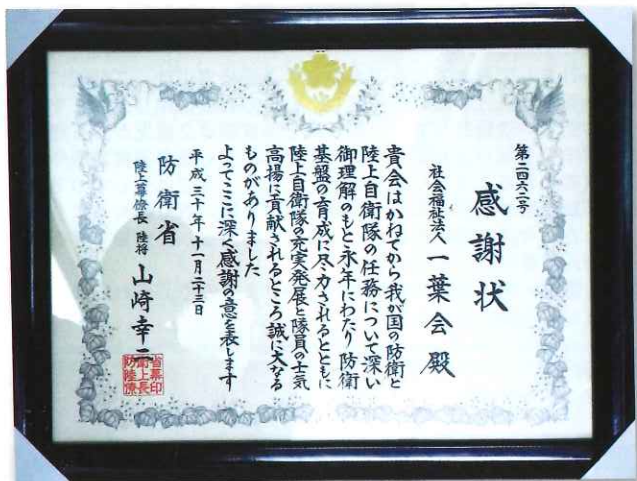 第二四六二号
感謝状
社会福祉法人 一葉会 殿
貴会はかねてから我が国の防衛と
陸上自衛隊の任務について深い
御理解のもと永年にわたり防衛
基盤の育成に尽力されるとともに
陸上自衛隊の充実発展と隊員の士気
高揚に貢献されるところ誠に大なる
ものがありました
よってここに深く感謝の意を表します
平成三十年十一月二十三日
防衛省
陸上幕僚長 陸将 山崎幸二
防衛省
陸上幕
僚長印